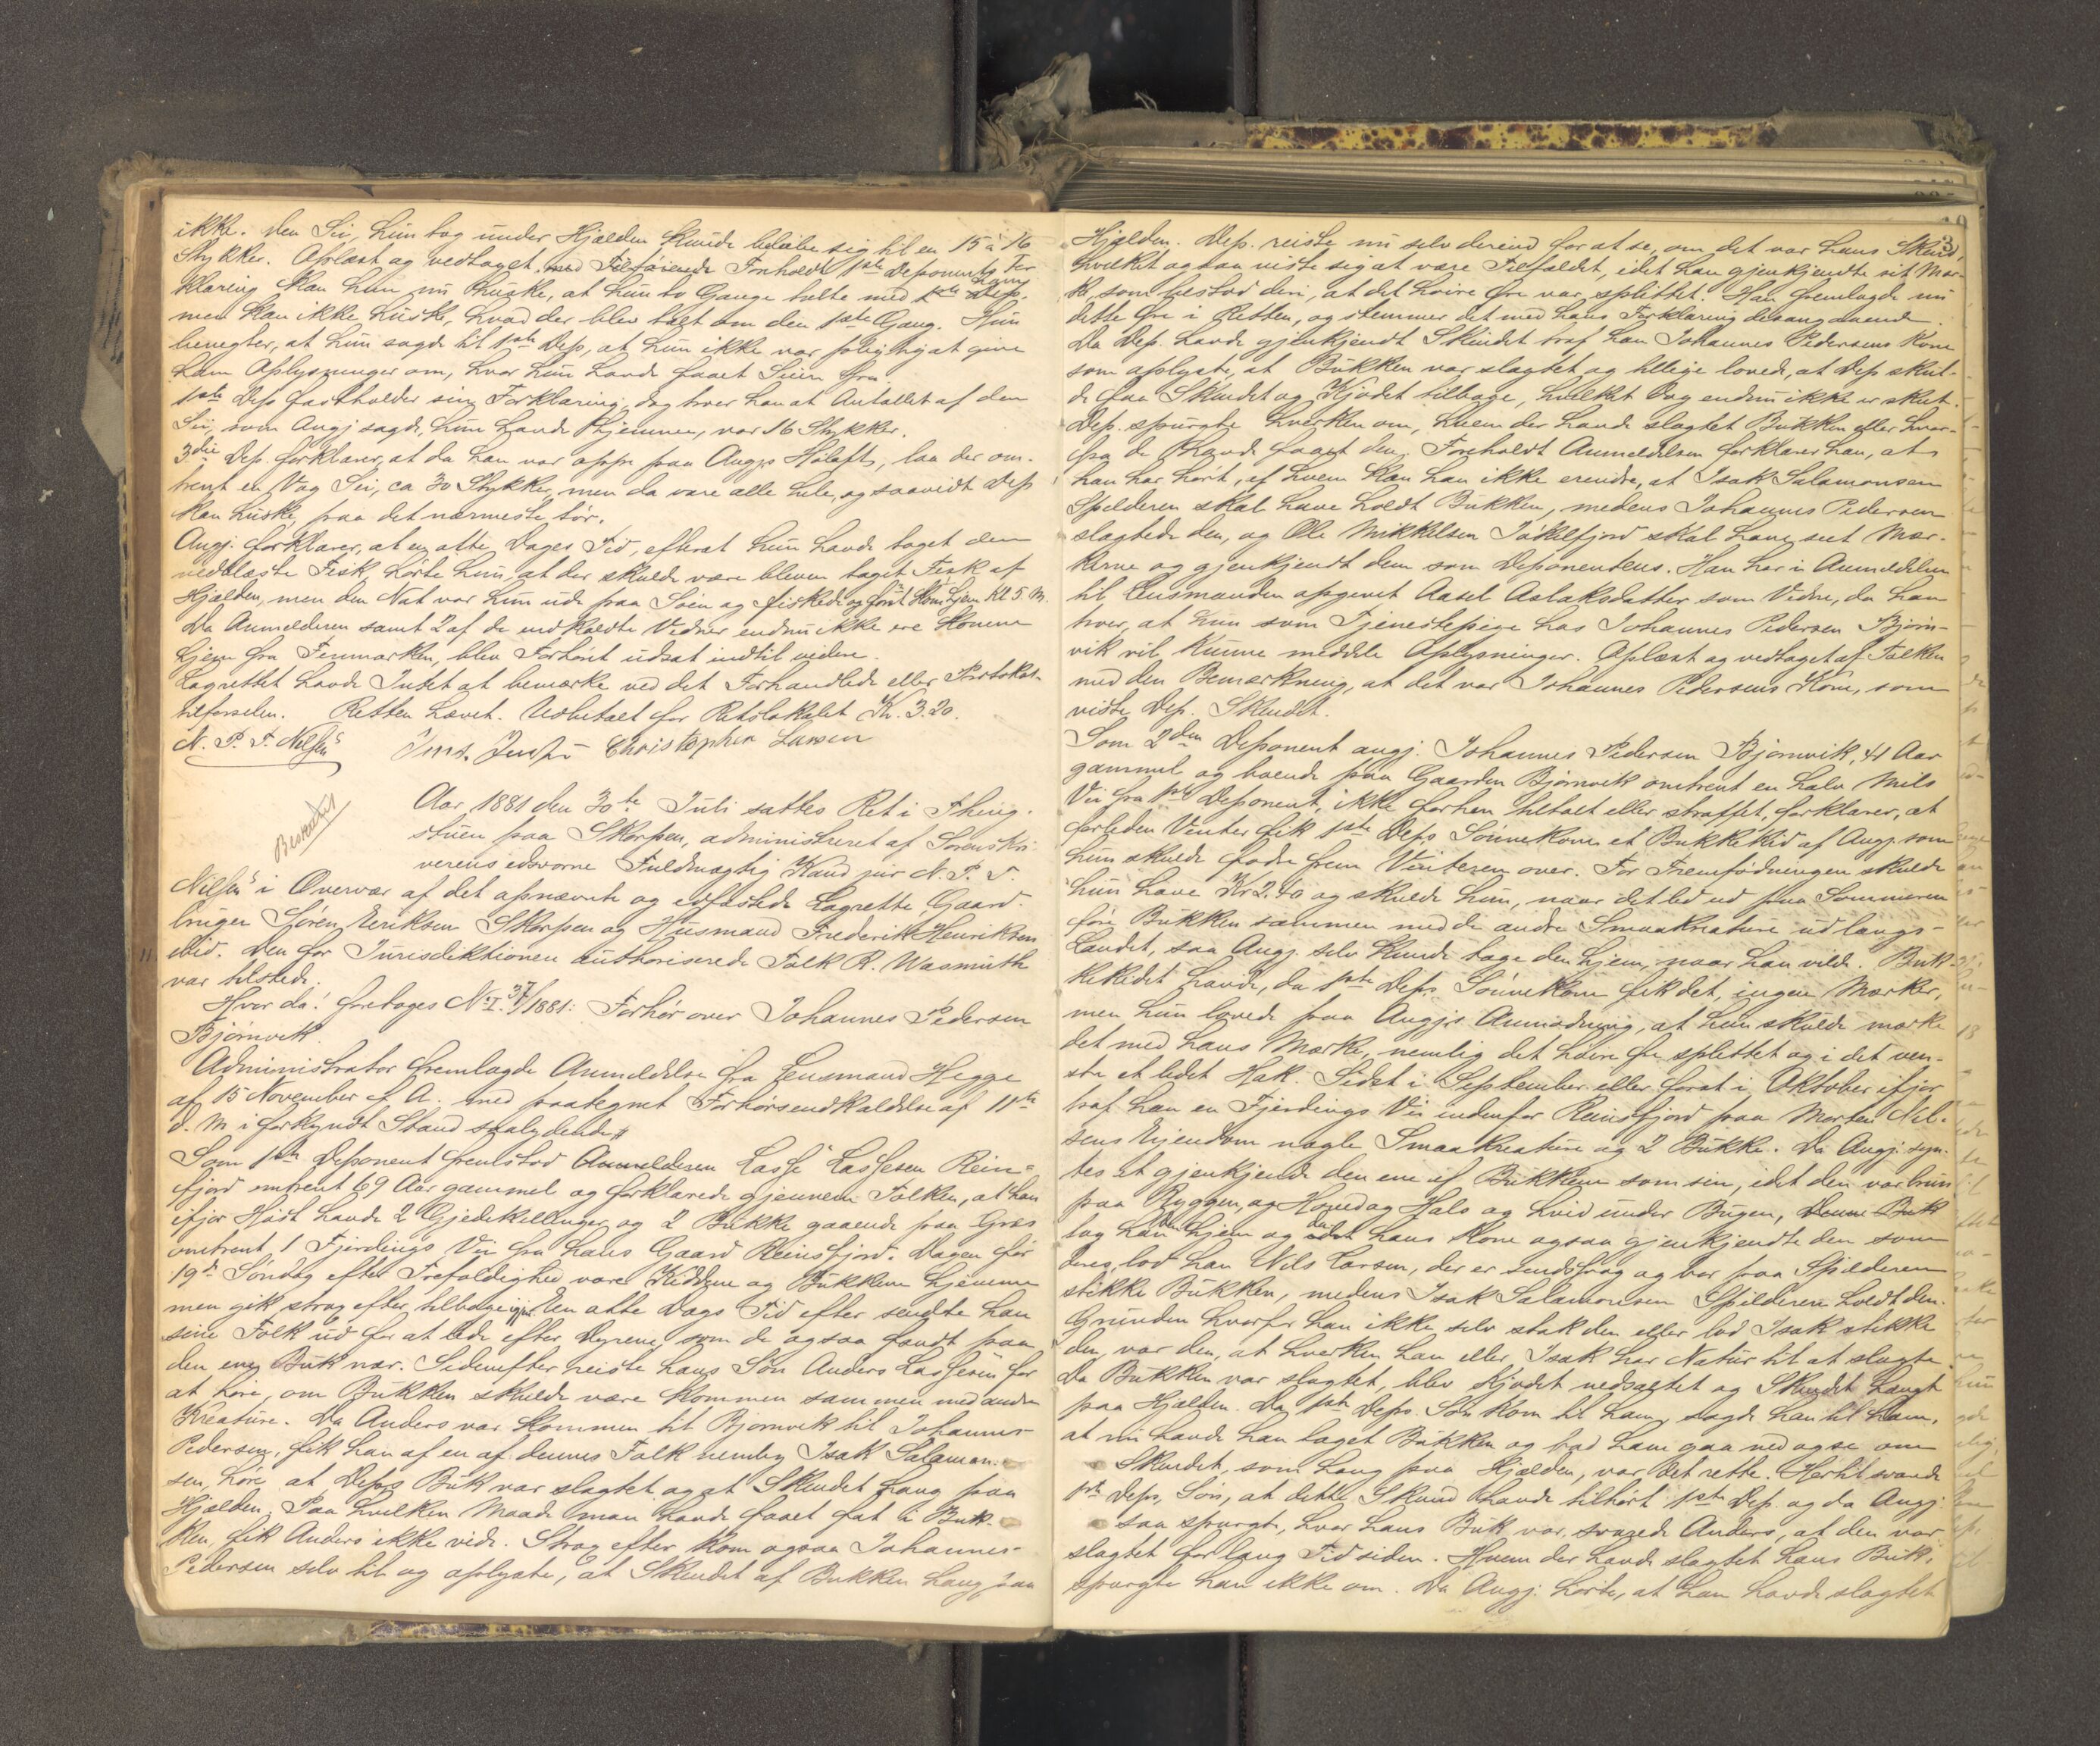 ikke. Den Sei, hun tog under Hjælden kunde beløbe sig til en 15 à 16
Stykker. Oplæst og vedtaget med Tilføiende Forholdt 1ste Deponents For
klaring kan hun nu huske, at hun to Gange talte med 1ste Dep.
men kan ikke huske, hvad der blev talt om den 1ste Gang. Hun
benegter, at hun sagde til 1ste Dep, at hun ikke var pligtig at give
ham Oplysninger om, hvor hun havde faaet Seien fra.
1ste Dep fastholder sin Forklaring, dog tror han at Antallet af den
Sei, som Angj sagde, hun havde hjemme, var 16 Stykker.
3die Dep. forklarer, at da han var oppe paa Angjs Høloft, laa der om-
trent en Vog Sei, ca 30 Stykker, men da vare alle hele, og saavidt Dep
kan huske, paa det nærmeste tør.
Angj. forklarer, at en otte Dages Tid, efterat hun havde taget den
nedblæste Fisk, hørte hun, at der skulde være bleven taget Fisk af
Hjælden, men den Nat var hun ude paa Søen og fiskede og først kom hjem Kl 5 M.
Da Anmelderen samt 2 af de indkaldte Vidner endnu ikke ere komne
hjem fra Finmarken, blev Forhøret udsat indtil videre.
Lagrettet havde Intet at bemærke ved det Forhandlede eller Protokol-
tilførselen. Retten hævet. Udbetalt for Retslokalet Kr. 3.20.
N. P. T. Nilsen Christopher Larsen
Aar 1881 den 30te Juli sattes Ret i Thing-
stuen paa Skorpen, administreret af Sorenskri-
verens edsvorne Fuldmægtig Kand jur N. P. T.
Nilsen i Overvær af det opnævnte og edfæstede Lagrette, Gaard-
bruger Søren Eriksen Skorpen og Husmand Frederik Henriksen
ibid. Den for Jurisdiktionen authoriserede Tolk R. Wasmuth
var tilstede.
Hvor da: foretoges No I. 37/1881: Forhør over Johannes Pedersen
Bjørnvik.
Administrator fremlagde Anmeldelse fra Lensmand Hegge
af 15 November f. A. med paategnet Forhørsindkaldelse af 11te
d. M i forkyndt Stand saalydende
Som 1ste Deponent fremstod Anmelderen Lasse Lassesen Rein-
fjord omtrent 69 Aar gammel og forklarede gjennem Tolken, at han
ifjor Høst havde 2 Gjedekillinger og 2 Bukke gaaende paa Græs
omtrent 1 Fjerdings Vei fra hans Gaard Reinsfjord. Dagen før
19de Søndag efter Trefoldighed vare Kiddene og Bukkene hjemme
men gik strax efter tilbage igjen. En otte Dags Tid efter sendte han
sine Folk ud for at lede efter Dyrene, som de ogsaa fandt paa
den ene Buk nær. Sidenefter reiste hans Søn Anders Lassesen for
at høre, om Bukken skulde være kommen sammen med andre
Kreature. Da Anders var kommen til Bjørnvik til Johannes
Pedersen, fik han af en af dennes Folk nemlig Isak Salamon-
sen, høre at Deps Buk var slagtet og at Skindet hang paa
Hjælden. Paa hvilken Maade man havde faaet fat i Buk-
ken, fik Anders ikke vide. Strax efter kom ogsaa Johannes
Pedersen selv til og oplyste, at Skindet af Bukken hang paa
Hjælden. Dep. reiste nu selv derind for at se, om det var hans Skind,
hvilket ogsaa viste sig at være Tilfældet, idet han gjenkjendte sit Mær-
ke, som bestod deri, at det høire Øre var splittet. Han fremlagde nu
dette Øre i Retten, og stemmer det med hans Forklaring desangaaende.
Da Dep. havde gjenkjendt Skindet traf han Johannes Pedersens Kone
som oplyste, at Bukken var slagtet og tillige lovede, at Dep skul-
de faa Skindet og Kjødet tilbage, hvilket dog endnu ikke er skeet.
Dep. spurgte hverken om, hvem der havde slagtet Bukken eller hvor-
fra de havde faaet den. Foreholdt Anmeldelsen forklarer han, at
han har hørt, af hvem kan han ikke erindre, at Isak Salamonsen
Spilderen skal have holdt Bukken, medens Johannes Pedersen
slagtede den, og Ole Mikkelsen Jøkelfjord skal have seet Mær-
kerne og gjenkjendt dem som Deponentens. Han har i Anmeldelsen
til Lensmanden opgivet Aasel Aslaksdatter som Vidne, da han
tror, at hun som Tjenestepige hos Johannes Pedersen Bjørn-
vik vil kunne meddele Oplysninger. Oplæst og vedtaget af Tolken
med den Bemærkning, at det var Johannes Pedersens Kone, som
viste Dep. Skindet.
Som 2den Deponent angj. Johannes Pedersen Bjørnvik, 41 Aar
gammel og boende paa Gaarden Bjørnvik omtrent en halv Mils
Vei fra 1ste Deponent, ikke forhen tiltalt eller straffet, forklarer, at
forleden Vinter fik 1ste Deps Sønnekone et Bukkekid af Angj. som
hun skulde fødre frem Vinteren over. For Fremfødningen skulde
hun have Kr 2.40 og skulde hun, naar det led ud paa Sommeren
føre Bukken sammen med de andre Smaakreature ud langs-
Landet, saa Angj. selv kunde tage den hjem, naar han vilde. Buk-
kekidet havde, da 1ste Deps. Sønnekone fik det, ingen Mærker,
men hun lovede paa Angjs Anmodning, at hun skulde mærke
det med hans Mærke, nemlig det høire Øre splittet og i det ven-
stre et lidet Hak. Sidst i September eller først i Oktober ifjor
traf han en Fjerdings Vei indenfor Reinsfjord paa Morten Nil-
sens Eiendom nogle Smaakreature og 2 Bukke. Da Angj. syn-
tes at gjenkjende den ene af Bukkene som sin, idet den var brun
paa Ryggen, og Hoved og Hals og hvid under Bugen, Denne Buk
tog han hjem og da hans Kone ogsaa gjenkjendte den som
deres, lod han Nils Larsen, der er sindssvag og bor paa Spilderen
stikke Bukken, medens Isak Salamonsen Spilderen holdt den.
Grunden hvorfor han ikke selv stak den eller lod Isak stikke
den, var den, at hverken han eller Isak har Natur til at slagte.
Da Bukken var slagtet, blev Kjødet nedsaltet og Skindet hængt
paa Hjælden. Da 1ste Deps. Søn kom til ham, sagde han til ham,
at nu havde han taget Bukken og bad ham gaa ned og se om
Skindet, som hang paa Hjælden, var det rette. Hertil svarede
1ste Deps, Søn, at dette Skind havde tilhørt 1ste Dep. og da Angj.
saa spurgte, hvor hans Buk var, svarede Anders, at den var
slagtet for lang Tid siden. Hvem der havde slagtet hans Buk,
spurgte han ikke om. Da Angj. hørte, at han havde slagtet